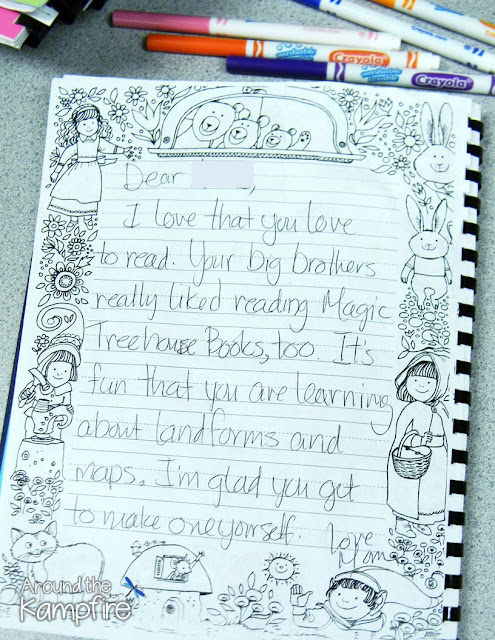 Crayola
Crayola
Crayola
Dear        ,
I love that you love
to read. Your big brothers
really liked reading Magic
Treehouse Books, too. It's
fun that you are learning
about landforms and
maps. I'm glad you get
to make one yourself. Love
Mom
Around the
Kampfire